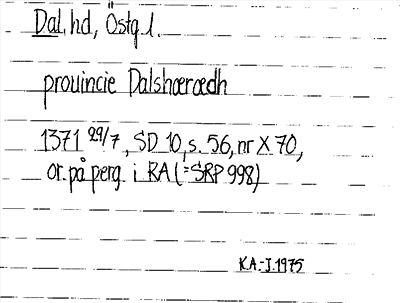 Dal. hd, Östg. l.
prouincie Dalshærædh
1371 29/7, SD 10, s. 56, nr X 70,
or. på perg. i RA (=SRP 998)
K.A.-J. 1975